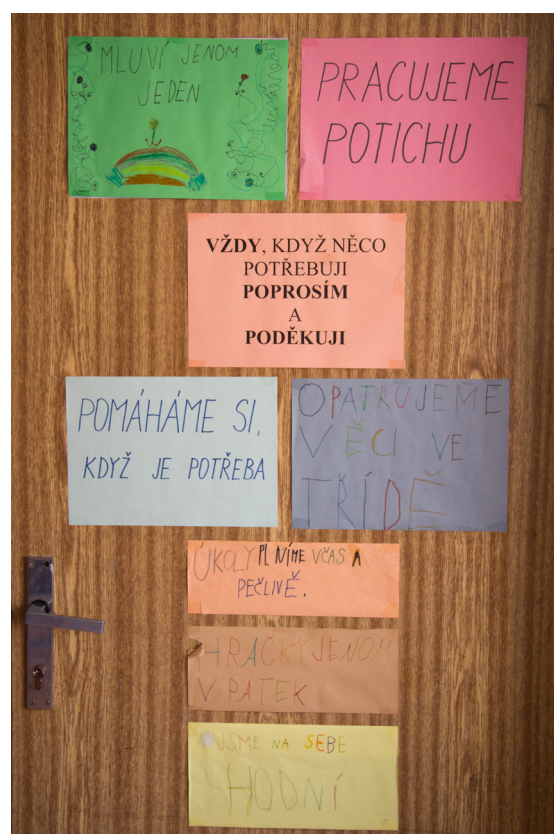 MLUVÍ JENOM
JEDEN
PRACUJEME
POTICHU
VŽDY, KDYŽ NĚCO
POTŘEBUJI
POPROSÍM
A
PODĚKUJI
POMÁHÁME SI,
KDYŽ JE POTŘEBA
OPATRUJEME
VĚCI VE
TŘÍDĚ
ÚKOLY PLNÍME VČAS A
PEČLIVĚ.
HRAČKY JENOM
V PÁTEK
JSME NA SEBE
HODNÍ